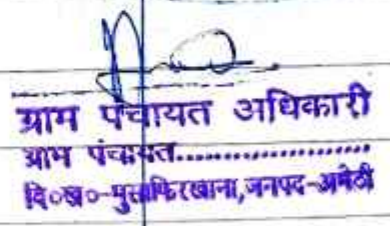 ग्राम पंचायत अधिकारी
ग्राम पंचायत....................
वि०ख०-मुसाफिरखाना,जनपद-अमेठी